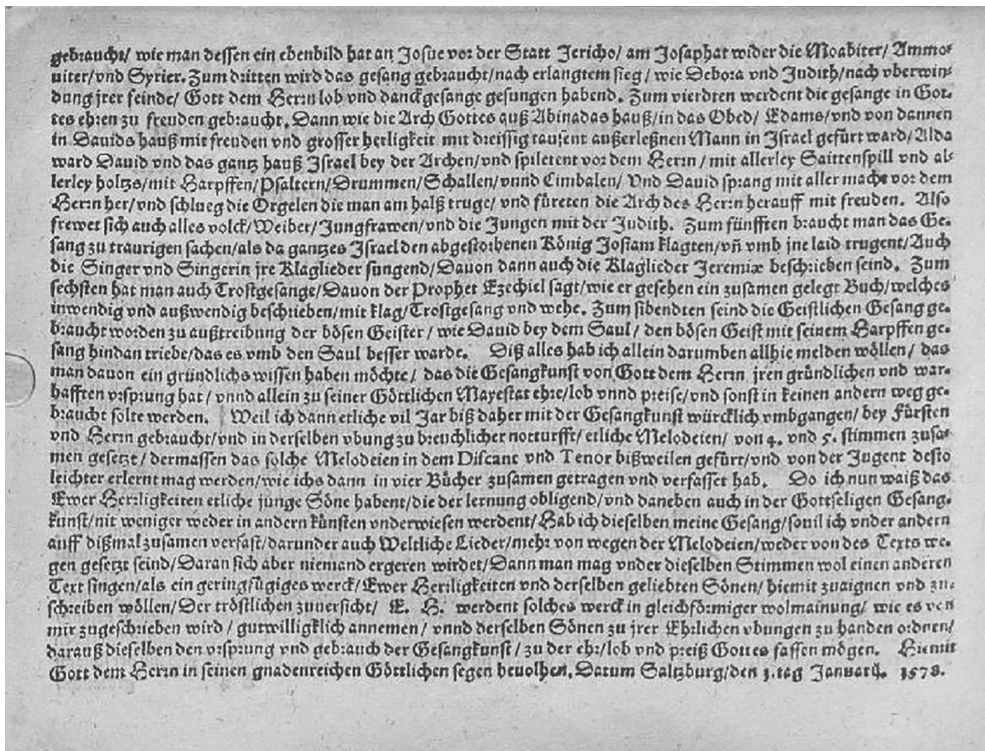 gebraucht/ wie man dessen ein ebenbild hat an Josue vor der Statt Jericho/ am Josaphat wider die Moabiter/ Ammo⸗
niter/vnd Syrier. Zum dritten wird das gesang gebraucht/nach erlangtem sieg/ wie Debora vnd Judith/nach vberwin⸗
dung jrer feinde/ Gott dem Herrn lob vnd danckgesange gesungen habend. Zum vierdten werdent die gesange in Got⸗
tes ehren zu freuden gebraucht. Dann wie die Arch Gottes auß Abinadas hauß/in das Obed/ Edams/vnd von dannen
in Dauids hauß mit freuden vnd grosser herligkeit mit dreissig tausent außerleßnen Mann in Jsrael gefürt ward/ Alda
ward Dauid vnd das gantz hauß Jsrael bey der Archen/vnd spiletent vor dem Herrn/ mit allerley Saittenspill vnd al⸗
lerley holtzs/mit Harpffen/Psaltern/Drummen/Schallen/vnnd Cimbalen/ Vnd Dauid sprang mit aller macht vor dem
Herrn her/vnd schlueg die Orgelen die man am halß truge/ vnd füreten die Arch des Herrn herauff mit freuden. Also
frewet sich auch alles volck/ Weiber/Jungfrawen/vnd die Jungen mit der Judith. Zum fünfften braucht man das Ge⸗
sang zu traurigen sachen/als da gantzes Jsrael den abgestorbenen König Josiam klagten/vñ vmb jne laid trugent/Auch
die Singer vnd Singerin jre Klaglieder sungend/Dauon dann auch die Klaglieder Jeremiæ beschrieben seind. Zum
sechsten hat man auch Trostgesange/Dauon der Prophet Ezechiel sagt/wie er gesehen ein zusamen gelegt Buch/welches
inwendig vnd außwendig beschrieben/mit klag/Trostgesang vnd wehe. Zum sibendten seind die Geistlichen Gesang ge⸗
braucht worden zu außtreibung der bösen Geister/ wie Dauid bey dem Saul/ den bösen Geist mit seinem Harpffen ge⸗
sang hindan triebe/das es vmb den Saul besser warde. Diß alles hab ich allein darumben allhie melden wöllen/ das
man dauon ein gründlichs wissen haben möchte/ das die Gesangkunst von Gott dem Herrn jren gründlichen vnd war⸗
hafften vrsprung hat/ vnnd allein zu seiner Göttlichen Mayestat ehre/lob vnnd preise/vnd sonst in keinen andern weg ge⸗
braucht solte werden. Weil ich dann etliche vil Jar biß daher mit der Gesangkunst würcklich vmbgangen/ bey Fürsten
vnd Herrn gebraucht/vnd in derselben vbung zu breuchlicher notturfft/etliche Melodeien/ von 4. vnd 5. stimmen zusa⸗
men gesetzt/ dermassen das solche Melodeien in dem Discant vnd Tenor bißweilen gefürt/vnd von der Jugent desto
leichter erlernt mag werden/wie ichs dann in vier Bücher zusamen getragen vnd verfasset hab. Do ich nun waiß das
Ewer Herrligkeiten etliche junge Söne habent/die der lernung obligend/vnd daneben auch in der Gottseligen Gesang⸗
kunst/nit weniger weder in andern künsten vnderwiesen werdent/Hab ich dieselben meine Gesang/souil ich vnder andern
auff dißmal zusamen verfast/darunder auch Weltliche Lieder/mehr von wegen der Melodeien/weder von des Texts we⸗
gen gesetzt seind/Daran sich aber niemand ergeren wirdet/Dann man mag vnder dieselben Stimmen wol einen anderen
Text singen/als ein geringfügiges werck/ Ewer Herrligkeiten vnd derselben geliebten Sönen/ hiemit zuaignen vnd zu⸗
schreiben wöllen/Der tröstlichen zuuersicht/ E. H. werdent solches werck in gleichförmiger wolmainung/ wie es von
mir zugeschrieben wird/ gutwilligklich annemen/ vnnd derselben Sönen zu jrer Ehrlichen vbungen zu handen ordnen/
darauß dieselben den vrsprung vnd gebrauch der Gesangkunst/ zu der ehr/lob vnd preiß Gottes fassen mögen. Hiemit
Gott dem Herrn in seinen gnadenreichen Göttlichen segen beuolhen. Datum Saltzburg/den 1.tag Januarij. 1578.